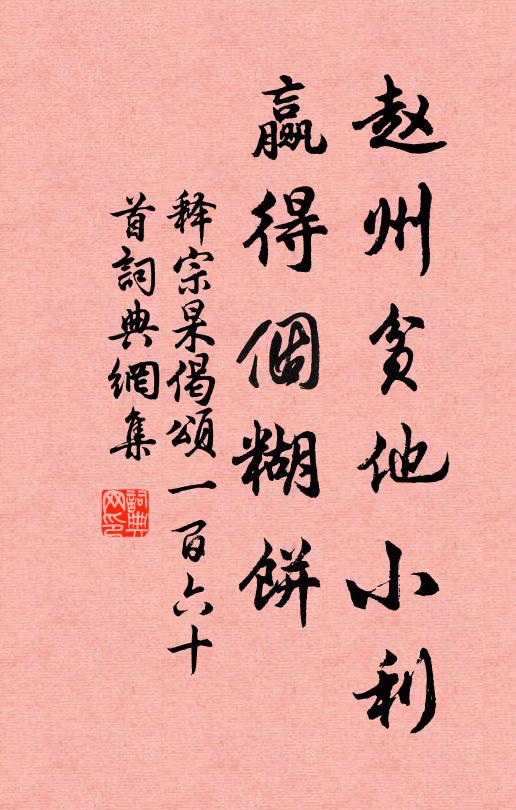 赵州贫他小利
赢得個糊餅
释宗杲偈頌一百六十
首詞典網集
詞典网印